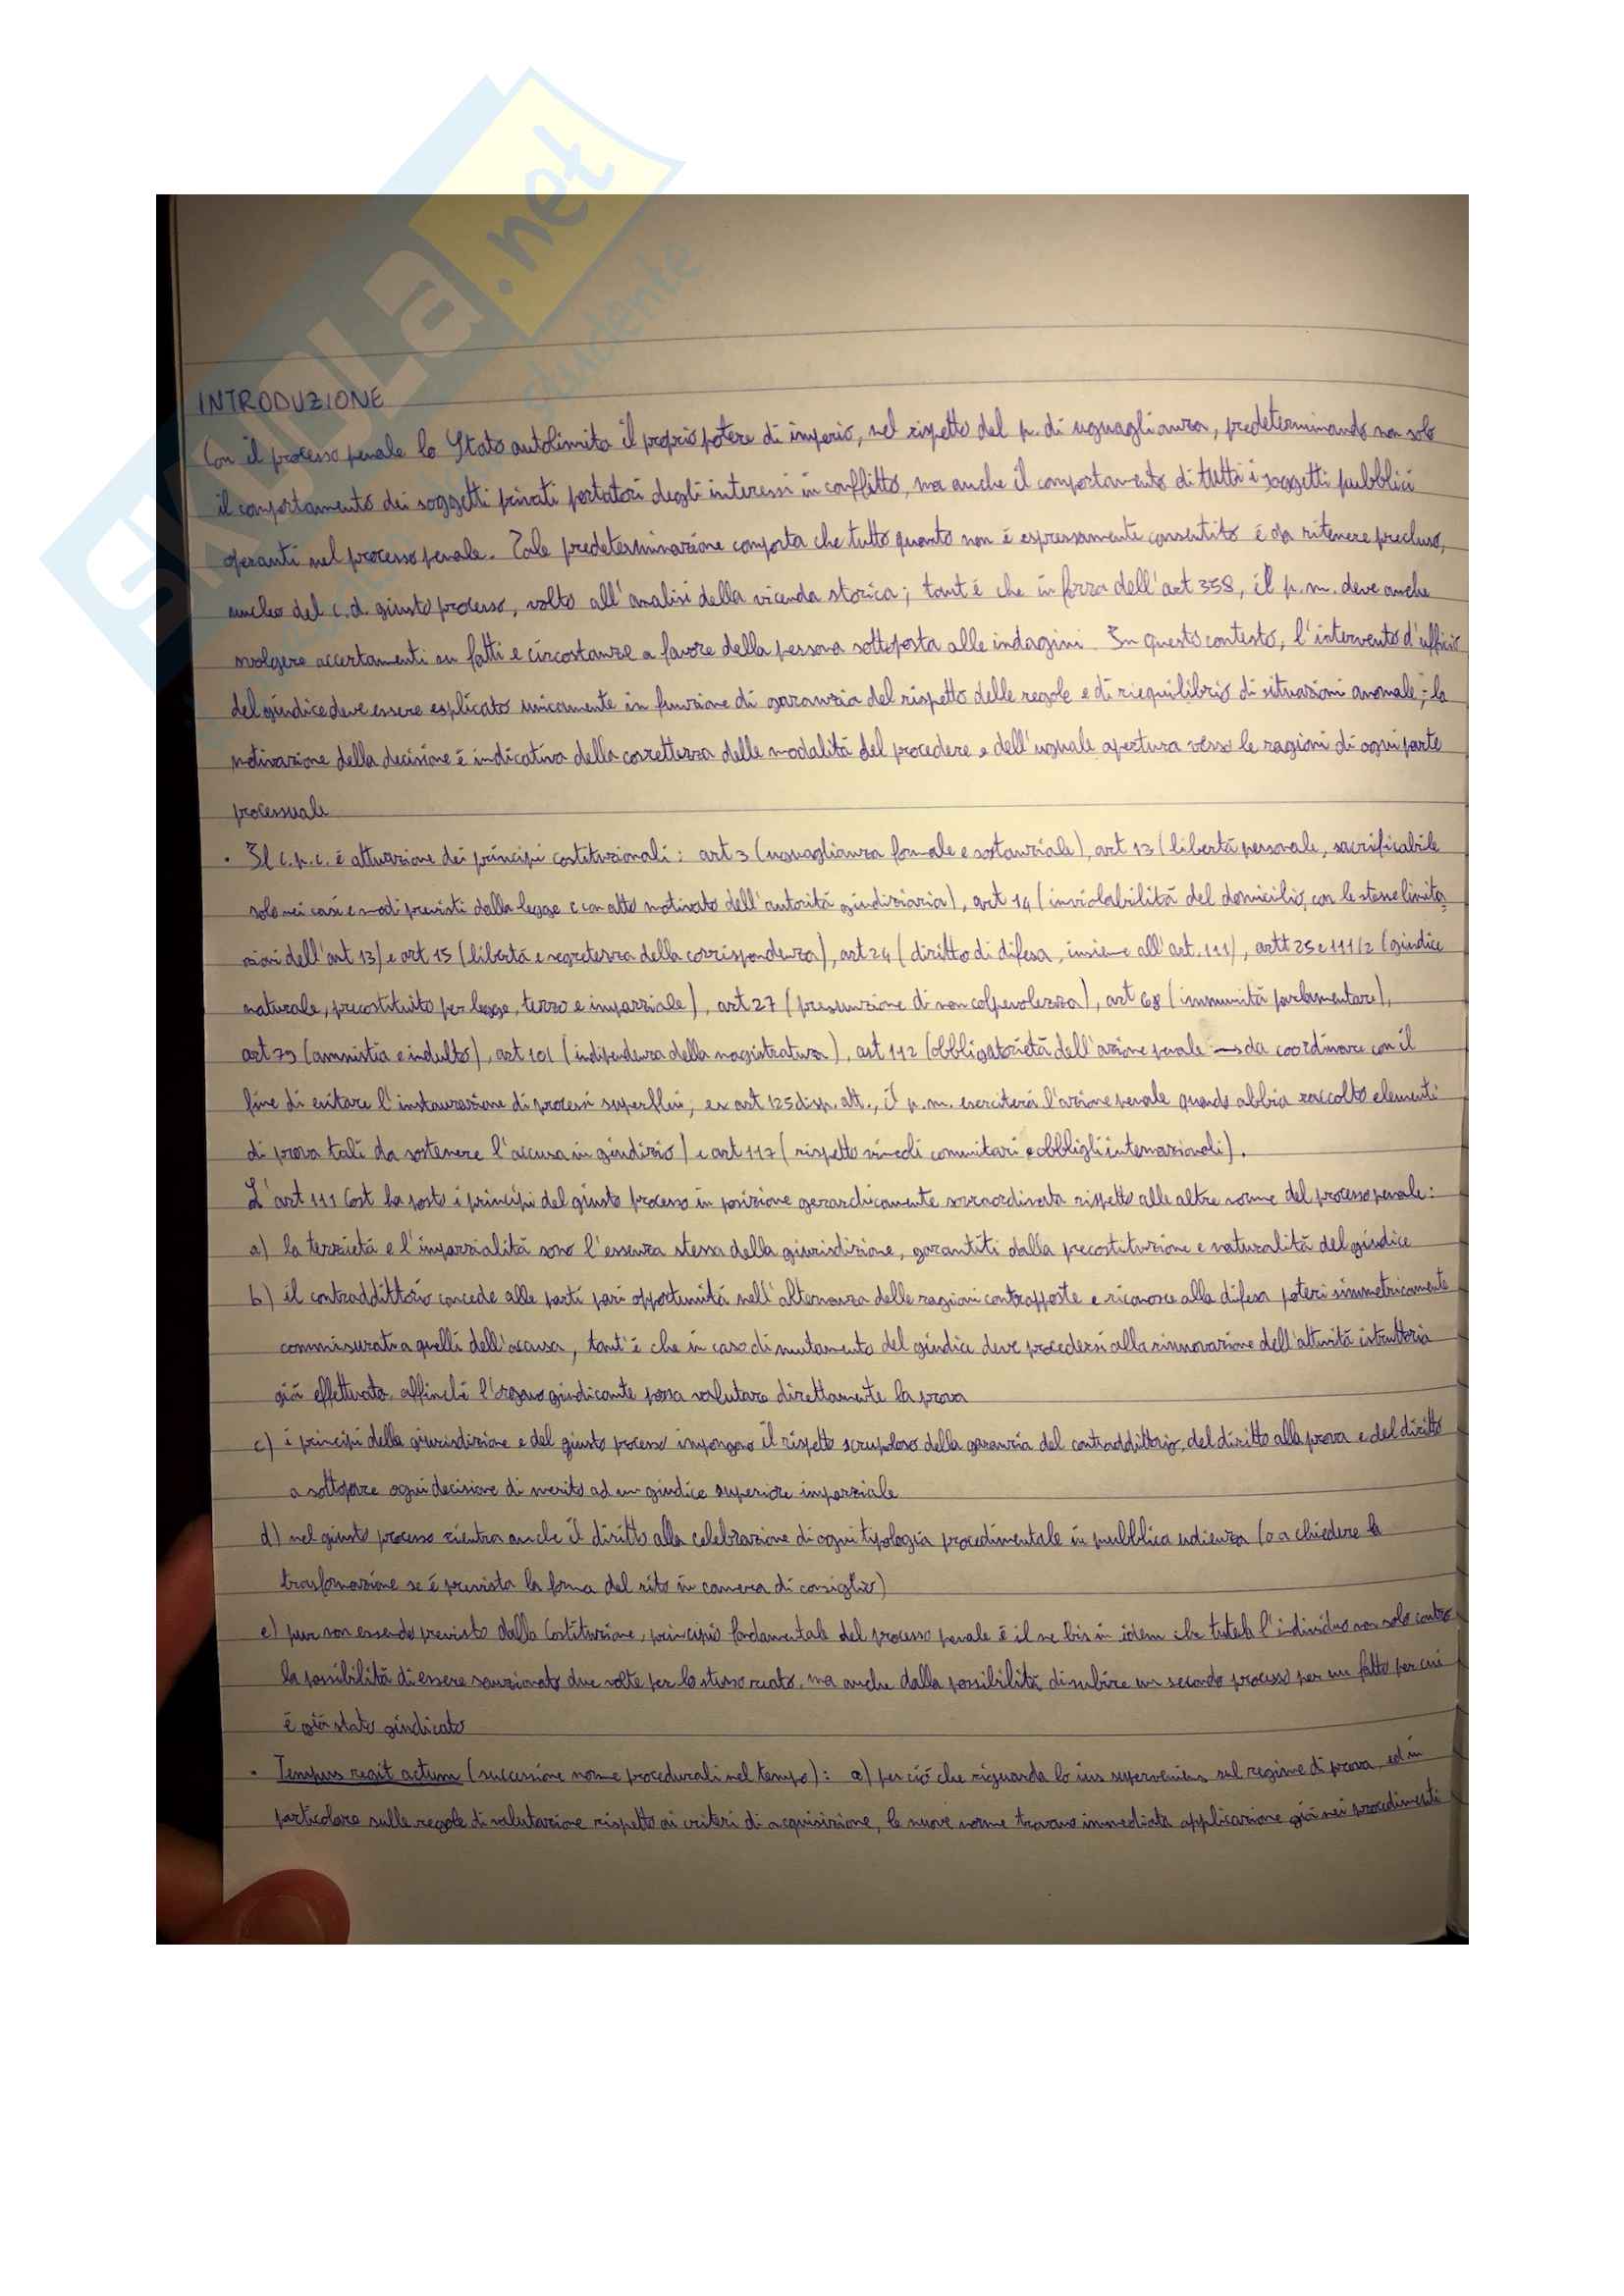 SKUOLa.net
studente
INTRODUZIONE
Con il processo penale lo Stato autolimita il proprio potere di imperio, nel rispetto del p. di uguaglianza, predeterminando non solo
il comportamento dei soggetti privati portatori degli interessi in conflitto, ma anche il comportamento di tutti i soggetti pubblici
operanti nel processo penale. Tale predeterminazione comporta che tutto quanto non é espressamente consentito é da ritenere precluso,
nucleo del c.d. giusto processo, volto all'analisi della vicenda storica; tant'é che in forza dell'art 358, il p.m. deve anche
svolgere accertamenti su fatti e circostanze a favore della persona sottoposta alle indagini. In questo contesto, l'intervento d'ufficio
del giudice deve essere esplicato unicamente in funzione di garanzia del rispetto delle regole e di riequilibrio di situazioni anomale; la
motivazione della decisione é indicativa della correttezza delle modalitá del procedere e dell'uguale apertura verso le ragioni di ogni parte
processuale
• Il c.p.c. é attuazione dei principi costituzionali: art 3 (uguaglianza formale e sostanziale), art 13 (libertá personale, sacrificabile
solo nei casi e modi previsti dalla legge e con atto motivato dell'autoritá giudiziaria), art 14 (inviolabilitá del domicilio, con le stesse limita-
zioni dell'art 13) e art 15 (libertá e segretezza della corrispondenza), art 24 (diritto di difesa, insieme all'art. 111), artt 25 e 111/2 (giudice
naturale, precostituito per legge, terzo e imparziale), art 27 (presunzione di non colpevolezza), art 68 (immunitá parlamentare),
art 79 (amnistia e indulto), art 101 (indipendenza della magistratura), art 112 (obbligatorietá dell'azione penale → da coordinare con il
fine di evitare l'instaurazione di processi superflui; ex art 125 disp. att., il p.m. eserciterá l'azione penale quando abbia raccolto elementi
di prova tali da sostenere l'accusa in giudizio) e art 117 (rispetto vincoli comunitari e obblighi internazionali).
L'art 111 Cost ha posto i principi del giusto processo in posizione gerarchicamente sovraordinata rispetto alle altre norme del processo penale:
a) la terzietá e l'imparzialitá sono l'essenza stessa della giurisdizione, garantiti dalla precostituzione e naturalitá del giudice
b) il contraddittorio concede alle parti pari opportunitá nell'alternanza delle ragioni contrapposte e riconosce alla difesa poteri simmetricamente
commisurati a quelli dell'accusa, tant'é che in caso di mutamento del giudice deve procedersi alla rinnovazione dell'attivitá istruttoria
giá effettuata, affinché l'organo giudicante possa valutare direttamente la prova
c) i principi della giurisdizione e del giusto processo impongono il rispetto scrupoloso della garanzia del contraddittorio, del diritto alla prova e del diritto
a sottoporre ogni decisione di merito ad un giudice superiore imparziale
d) nel giusto processo rientra anche il diritto alla celebrazione di ogni tipologia procedimentale in pubblica udienza (o a chiedere la
trasformazione se é prevista la forma del rito in camera di consiglio)
e) pur non essendo previsto dalla Costituzione, principio fondamentale del processo penale é il ne bis in idem che tutela l'individuo non solo contro
la possibilitá di essere sanzionato due volte per lo stesso reato, ma anche dalla possibilitá di subire un secondo processo per un fatto per cui
é giá stato giudicato
• Tempus regit actum (successione norme procedurali nel tempo): a) per ció che riguarda lo ius superveniens sul regime di prova, ed in
particolare sulle regole di valutazione rispetto ai criteri di acquisizione, le nuove norme trovano immediata applicazione giá nei procedimenti